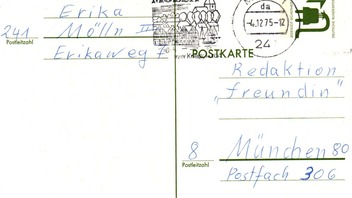 Erika
241 Mölln
Postleitzahl
Erikaweg 7
da
-4.12.75-12
24
POSTKARTE
Redaktion
„freundin"
8 München 80
Postleitzahl
Postfach 306